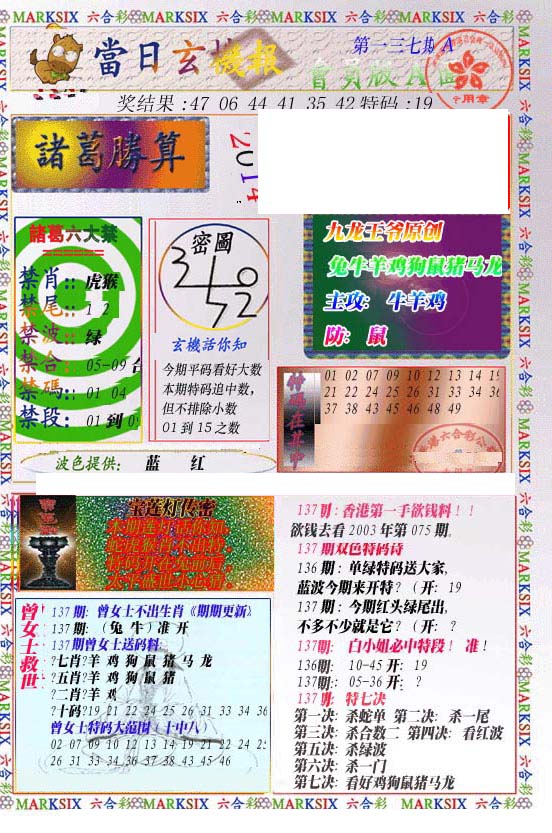 MARKSIX 六合彩 MARKSIX 六合彩 MARKSIX 六合彩 MARKSIX 六合彩
當日玄机機报
第一三七期 A
會員版 A 面
奖结果:47 06 44 41 35 42 特码:19
諸葛勝算
諸葛六大禁
禁肖:: 虎猴
禁尾:: 1 2
禁波:: 绿
禁合:: 05-09 合
禁碼:: 01 04
禁段:: 01 到 09
密圖
玄機話你知
今期平码看好大数
本期特码追中数,
但不排除小数
01 到 15 之数
九龙王爷原创
兔牛羊鸡狗鼠猪马龙
主攻: 牛羊鸡
防: 鼠
特码在其中
01 02 07 09 10 12 13 14 19
21 22 24 25 26 31 33 34 36
37 38 43 45 46 48 49
波色提供: 蓝 红
宝莲灯传密
曾女士救世
137 期: 曾女士不出生肖《期期更新》
137 期: (兔 牛) 准 开
137 期曾女士送码料
?七肖?羊 鸡 狗 鼠 猪 马 龙
?五肖?羊 鸡 狗 鼠 猪
?二肖?羊 鸡
?十码?19 21 22 24 25 26 31 33 34 36
曾女士特码大范围(十中八)
02 07 09 10 12 13 14 19 21 22 24 25
26 31 33 34 36 37 38 43 45 46
137 期:香港第一手欲钱料!!
欲钱去看 2003 年第 075 期。
137 期双色特码诗
136 期:单绿特码送大家,
蓝波今期来开特?(开: 19
137 期:今期红头绿尾出,
不多不少就是它?(开: ?
137期: 白小姐必中特段! 准!
136期: 10-45 开: 19
137期:: 05-36 开: ?
137 期: 特七决
第一决: 杀蛇单 第二决: 杀一尾
第三决: 杀合数二 第四决: 看红波
第五决: 杀绿波
第六决: 杀一门
第七决: 看好鸡狗鼠猪马龙
MARKSIX 六合彩 MARKSIX 六合彩 MARKSIX 六合彩 MARKSIX 六合彩